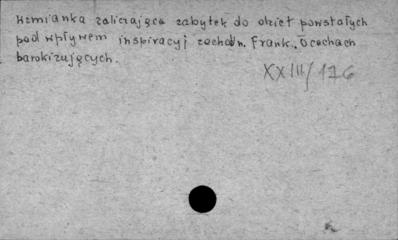 Wzmianka zaliczająca zabytek do dzieł powstałych
pod wpływem inspiracyj zachodn. Frank., o cechach
barokizujących.
XXIII/126